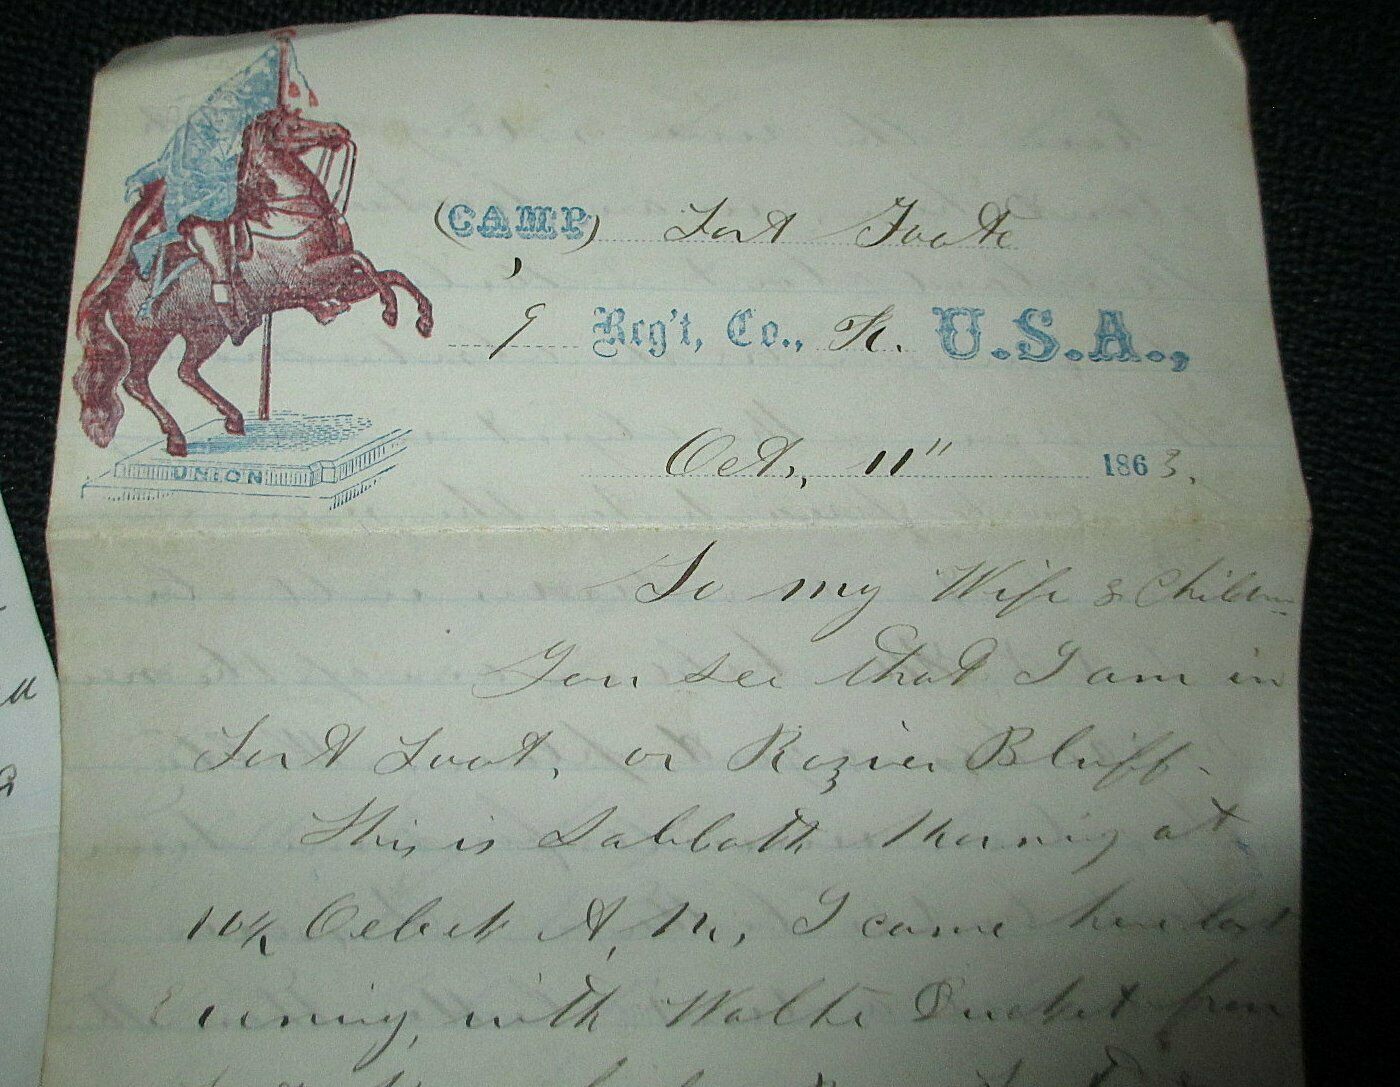 UNION
(CAMP) Fort Foote
9 Reg't, Co., K. U.S.A.,
Oct, 11" 1863.
To my Wife & Children
You see that, I am in
Fort Foot, or Rozier Bluff-
This is Sabbath Morning at
10½ Oclock A, M, I came here last
Evening, with Walter from